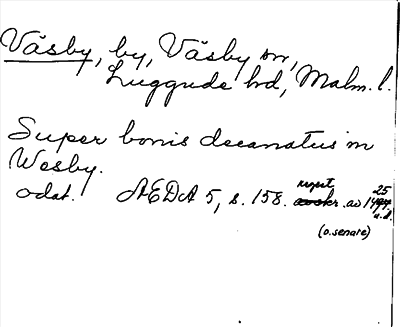 Väsby, by, Väsby sn,
Luggude hd, Malm. l.
Super bonis decanatus in
Wesby.
odat. AEDA 5, s. 158. regest av 1425
n.d.
(o. senare)